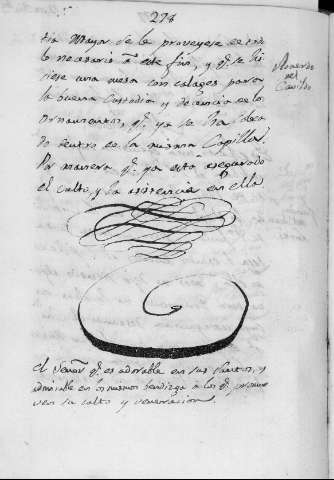 274
tia Mayor se le proveyese de todo
lo necesario à este fin, y qᵉ. se hi
ciese una mesa con calages para
la buena Custodia y decencia de los
Ornamentos, qᵉ. ya se ha coloca
do dentro de la misma Capilla.
Por manera qᵉ. ya está asegurado
el culto, y la asistencia en ella
Acuerdo
del
Cavildo
El Señor qᵉ. es adorable en sus Santos, y
admirable en los mismos bendiga à los qᵉ. promue
ven su culto y veneracion.